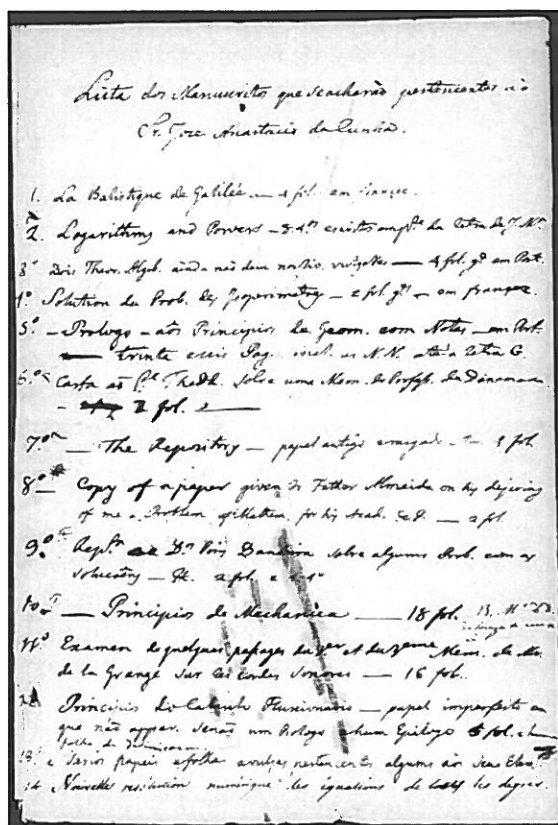 Lista dos Manuscritos que se acharão pertencentes ao
Sr. Joze Anastacio da Cunha.
1. La Balistique de Galilée — 4 fol. em francez.
2. Logarithms and Powers — escritos da letra de
3º Dois Theor. Algeb. ainda não dem — 4 fol. gd em Port.
4º Solution du Prob. des Isoperimetres — 2 fol. gd — em francez
5º — Prologo — aos Principios de Geom. com Notas — em Port.
trinta e seis Pag. incl. as N.N. até a letra G.
6º Carta ao sobre uma Mem. da Dinamarca
2 fol.
7º — The Repository — papel antigo — 1 fol
8º Copy of a paper given to Father Almeida on his desiring
of me a Problem of Mathem. for his Acad. — 2 fol.
9º Bandeira sobre alguns Prob. com as
soluções — 2 fol. e
10º — Principios de Mechanica — 18 fol.
11º Examen de quelques passages du 1er et du 2eme Mem. de M.
de la Grange sur les Cordes Sonores — 16 fol.
Principios do Calculo Fluxionario — papel imperfeito em
que não appar. senão um Prologo e hum Epilogo 5 fol. e hum
folha de
13. e Varios papeis e folhas avulsas pertencentes alguns aos seus Elem.
14 Nouvelle resolution numerique des équations de tous les degres.